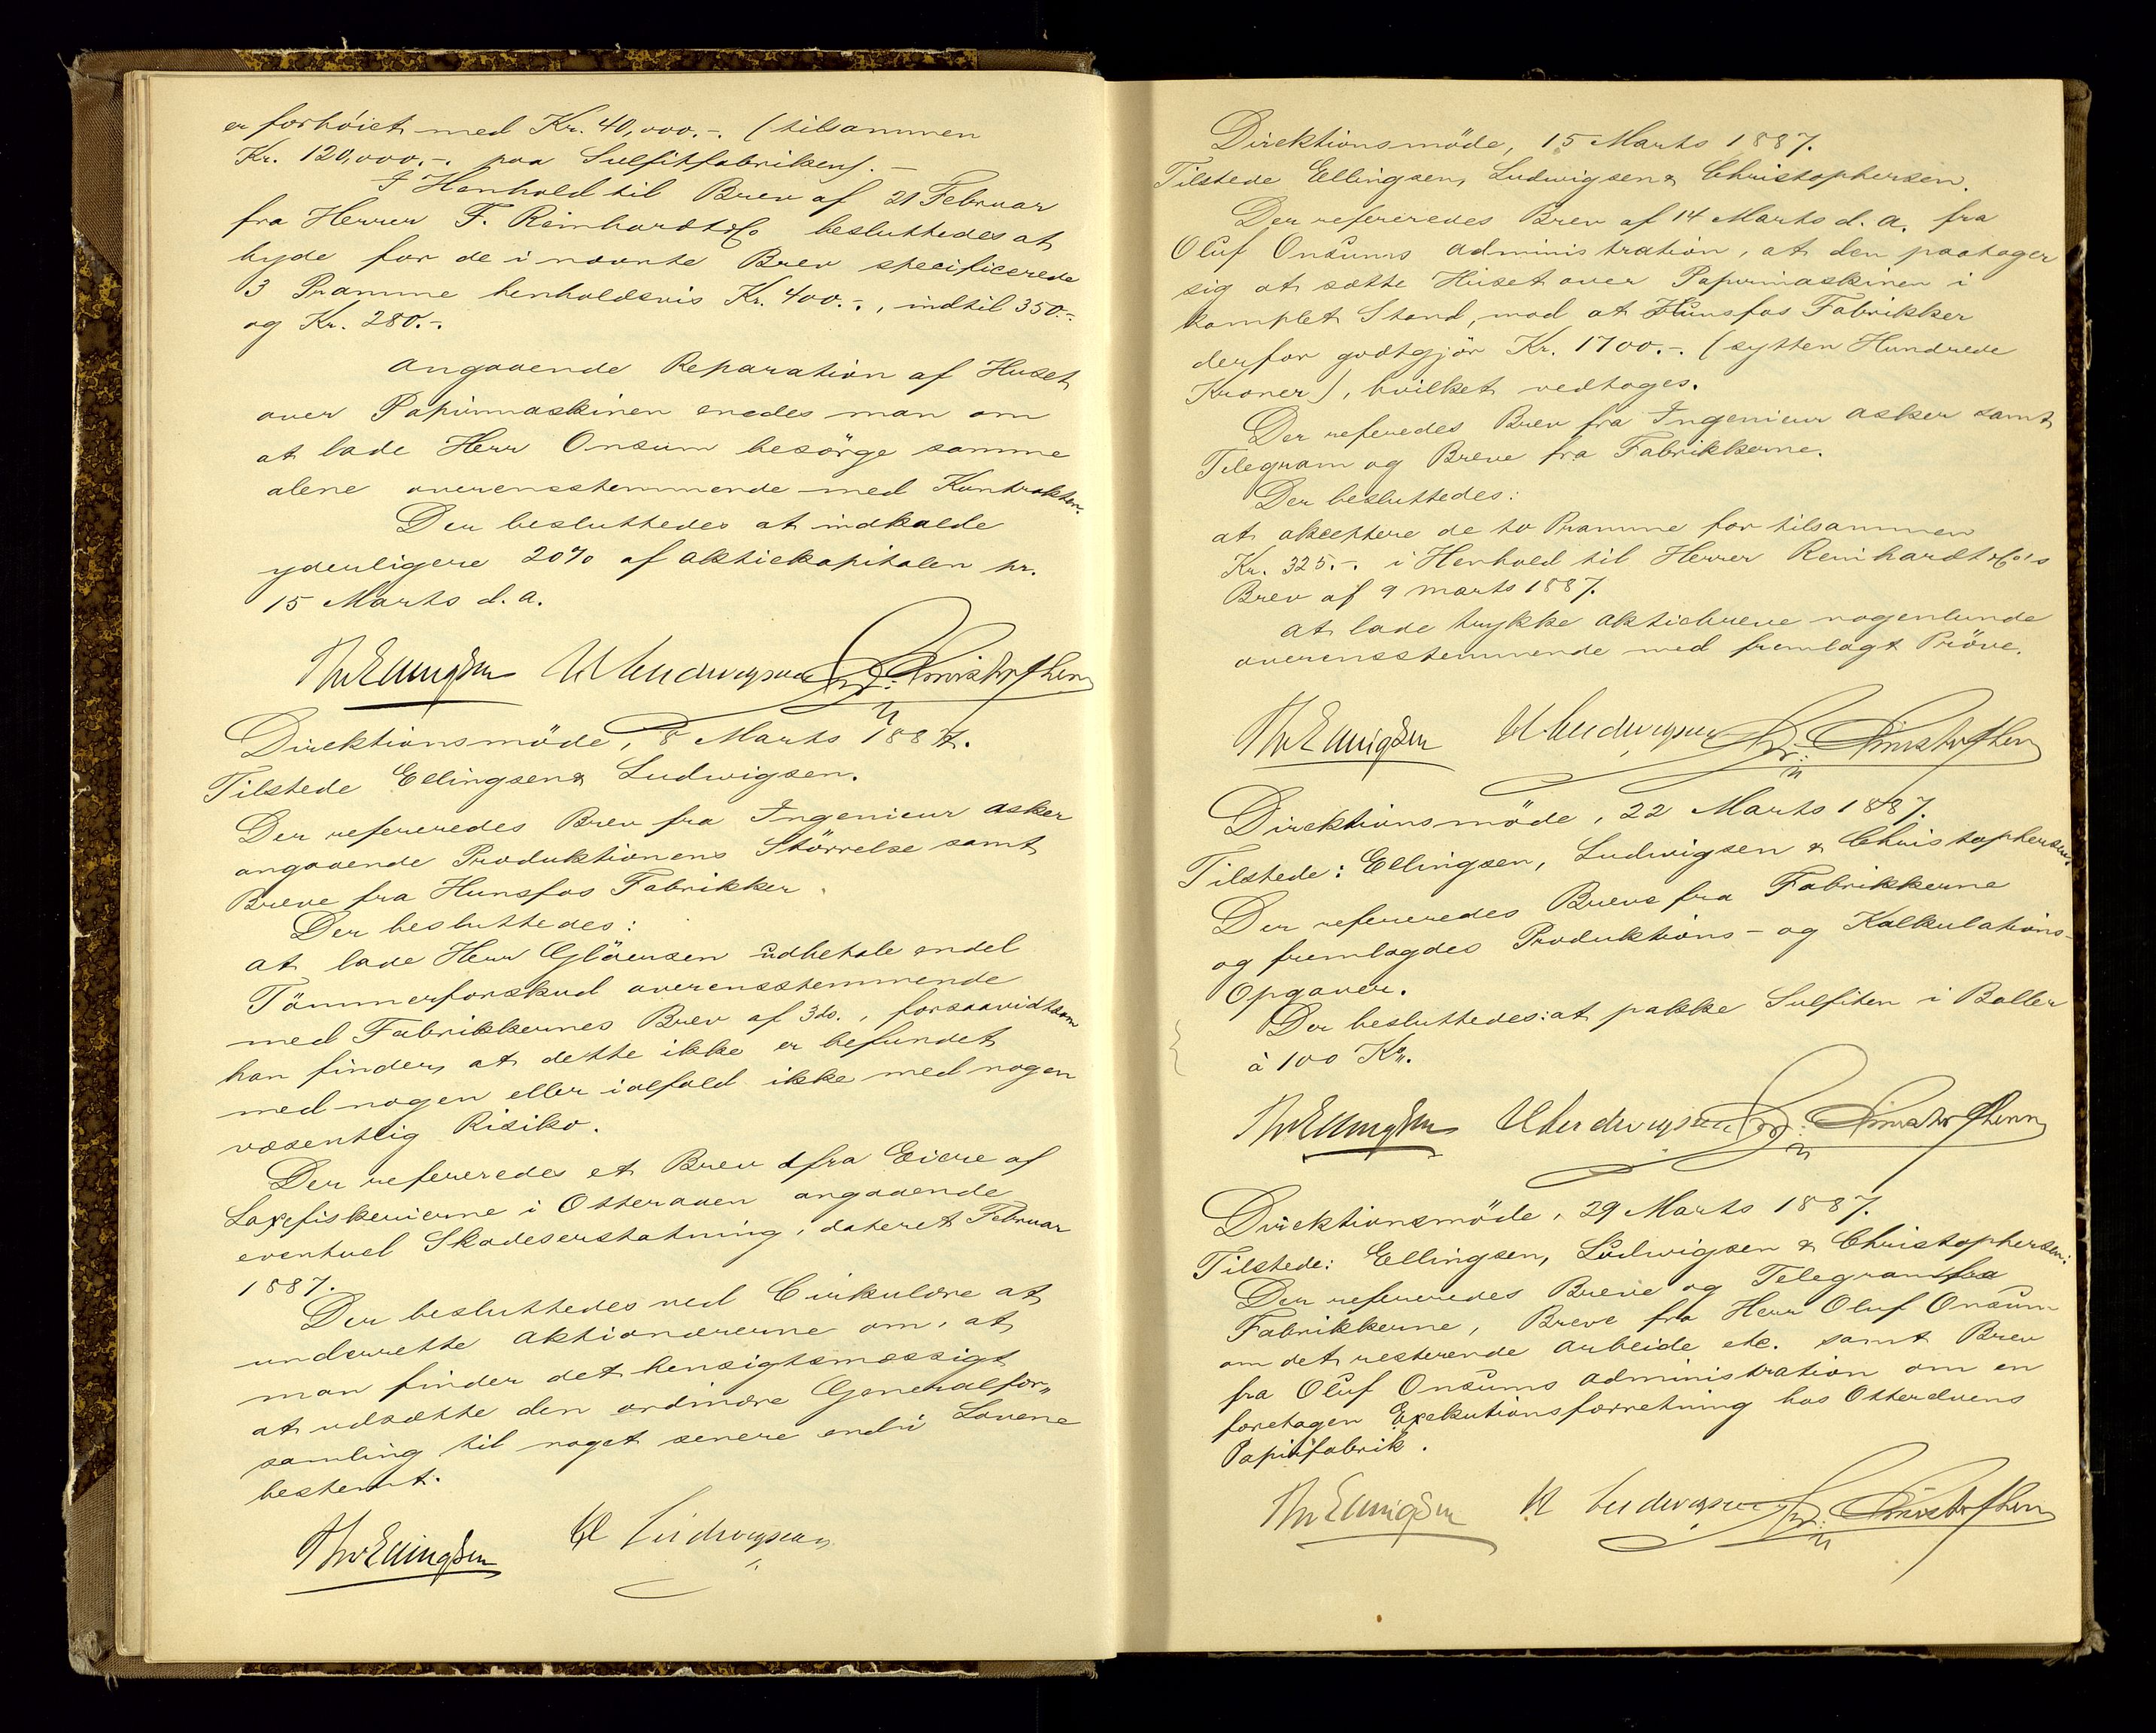 er forhöiet med Kr. 40,000.-. (tilsammen
Kr. 120,000.-. paa Sulfitfabriken). -
I Henhold til Brev af 21 Februar
fra Herrer F. Reinhardt & Co besluttedes at
byde for de i nævnte Brev specificerede
3 Pramme henholdsvis Kr. 400.-., indtil 350.-.
og Kr. 280.-.
Angaaende Reparation af Huset
over Papirmaskinen enedes man om
at lade Herr Onsum besörge samme
alene overensstemmende med Kontrakten.
Der besluttedes at indkalde
yderligere 20% af Aktiekapitalen pr.
15 Marts d. A.
Thv Ellingsen Ludwigsen Christophersen
Direktionsmöde, 8 Marts 1887.
Tilstede Ellingsen & Ludwigsen.
Der refereredes Brev fra Ingenieur Asker
angaaende Produktionens Störrelse samt
Breve fra Hunsfos Fabrikker.
Der besluttedes:
at lade Herr Glöersen udbetale endel
Tömmerforskud overensstemmende
med Fabrikkernes Brev af 3 ds., forsaavidtsom
han finder, at dette ikke er befundet
med nogen eller ialfald ikke med nogen
væsentlig Risiko.
Der refereredes et Brev fra Eiere af
Laxefiskerierne i Otteraaen angaaende
eventuel Skadeserstatning, dateret Februar
1887.
Der besluttedes ved Cirkulære at
underrette Aktionærerne om, at
man finder det hensigtsmæssigt
at udsætte den ordinære Generalfor„
samling til noget senere end i Lovene
bestemt.
Thv Ellingsen Ludwigsen
Direktionsmöde, 15 Marts 1887.
Tilstede Ellingsen, Ludwigsen & Christophersen.
Der refereredes Brev af 14 Marts d. A. fra
Oluf Onsums Administration, at den paatager
sig at sætte Huset over Papirmaskinen i
komplet Stand, mod at Hunsfos Fabrikker
derfor godtgjör Kr. 1700.-. (sytten Hundrede
Kroner), hvilket vedtoges.
Der referedes Brev fra Ingenieur Asker samt
Telegram og Breve fra Fabrikkerne.
Der besluttedes:
at akceptere de to Pramme for tilsammen
Kr. 325.-. i Henhold til Herrer Reinhardt & Co's
Brev af 9 Marts 1887.
at lade trykke Aktiebreve nogenlunde
overensstemmende med fremlagt Pröve.
Thv Ellingsen Ludwigsen Christophersen
Direktionsmöde, 22 Marts 1887.
Tilstede: Ellingsen, Ludwigsen & Christophersen.
Der refereredes Breve fra Fabrikkerne
og fremlagdes Produktions- og Kalkulations-
Opgaver.
Der besluttedes: at pakke Sulfiten i Baller
à 100 Ko.
Thv Ellingsen Ludwigsen Christophersen
Direktionsmöde, 29 Marts 1887.
Tilstede: Ellingsen, Ludwigsen & Christophersen:
Der refereredes Breve og Telegram fra
Fabrikkerne, Breve fra Herr Oluf Onsum
om det resterende Arbeide etc. samt Brev
fra Oluf Onsums Administration om en
foretagen Exekutionsforretning hos Otteraaens
Papirfabrik.
Thv Ellingsen Ludwigsen Christophersen